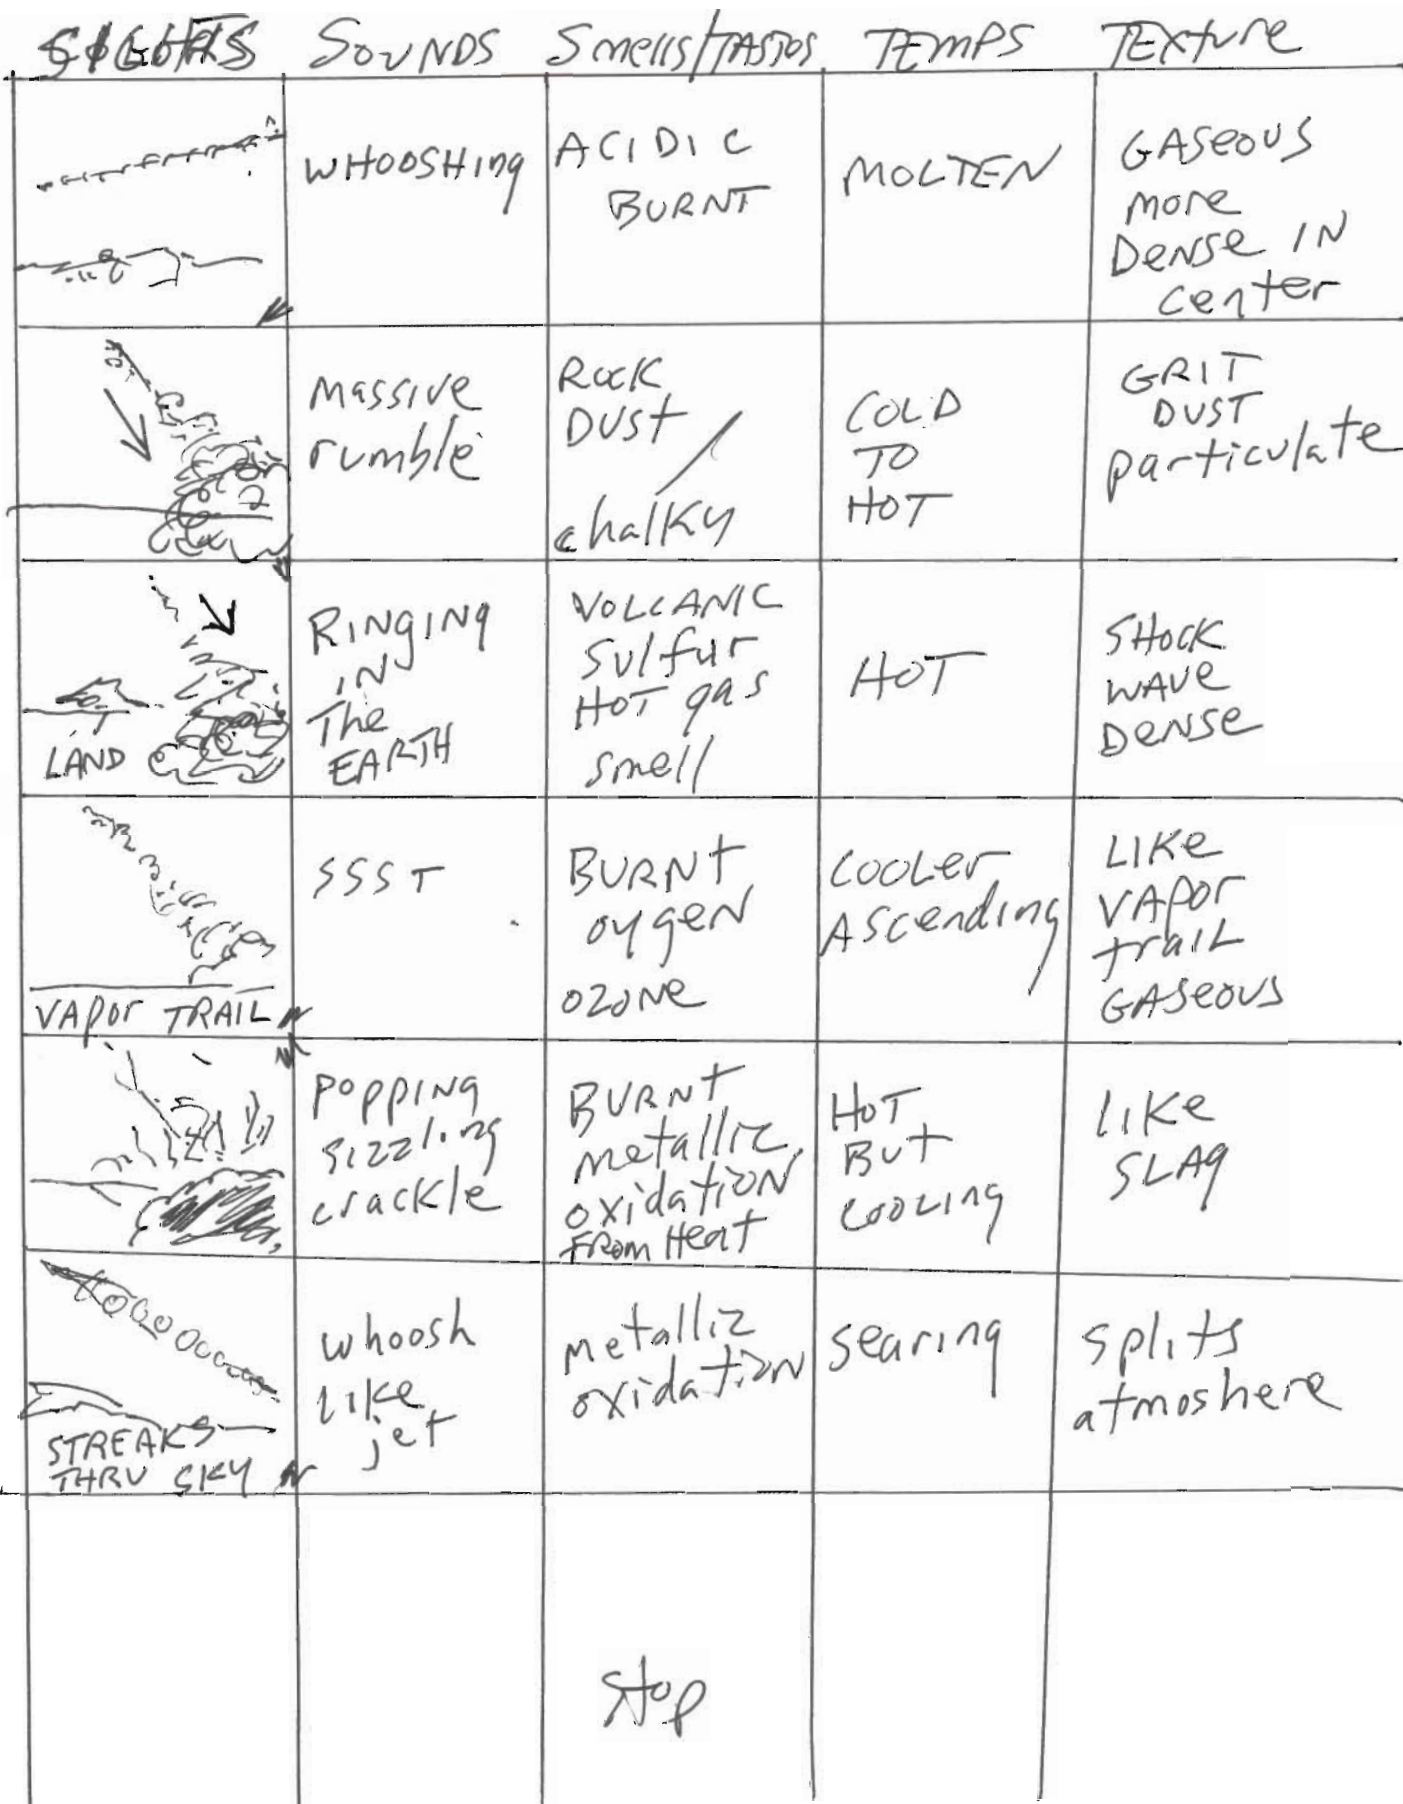 SIGHTS SOUNDS Smells/TASTES TEMPS TEXTURE
WHOOSHING
ACIDIC
BURNT
MOLTEN
GASEOUS
more
DENSE IN
center
massive
rumble
ROCK
DUST
chalky
COLD
TO
HOT
GRIT
DUST
particulate
LAND
RINGING
IN
The
EARTH
VOLCANIC
sulfur
HOT gas
smell
HOT
SHOCK
WAVE
DENSE
VAPOR TRAIL
SSST
BURNT
oygen
OZONE
COOLER
ASCENDING
LIKE
VAPOR
TRAIL
GASEOUS
POPPING
sizzling
crackle
BURNT
metallic
oxidation
FROM HEAT
HOT
BUT
COOLING
LIKE
SLAG
STREAKS
THRU SKY
whoosh
LIKE
jet
metallic
oxidation
searing
splits
atmoshere
Stop